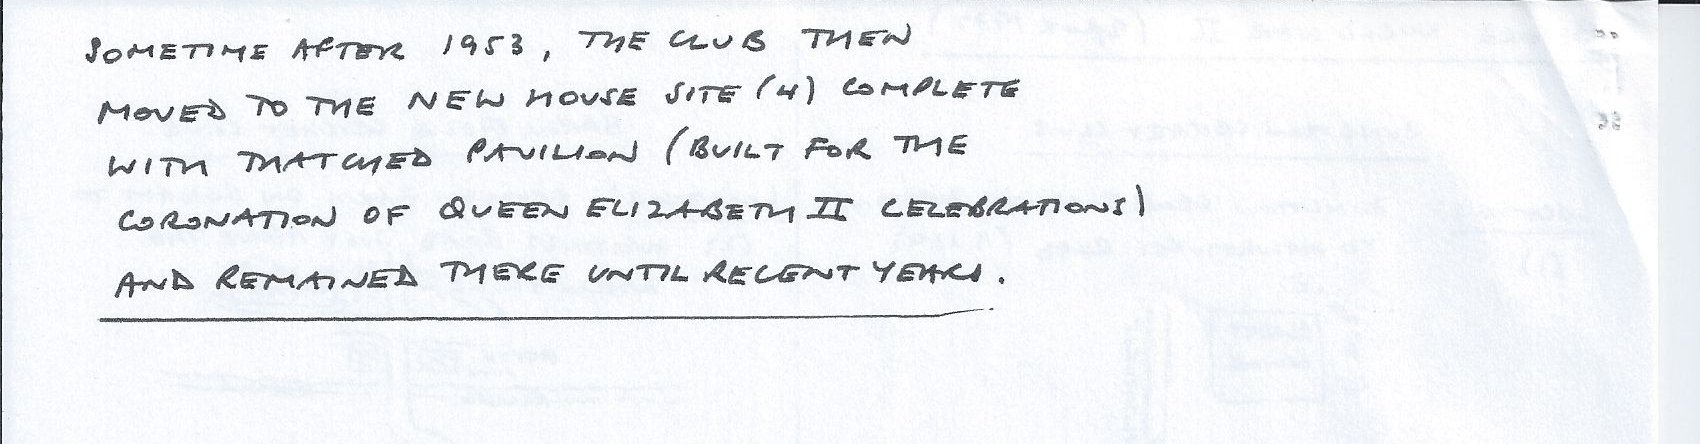 SOMETIME AFTER 1953, THE CLUB THEN
MOVED TO THE NEW HOUSE SITE (4) COMPLETE
WITH THATCHED PAVILION (BUILT FOR THE
CORONATION OF QUEEN ELIZABETH II CELEBRATIONS)
AND REMAINED THERE UNTIL RECENT YEARS.